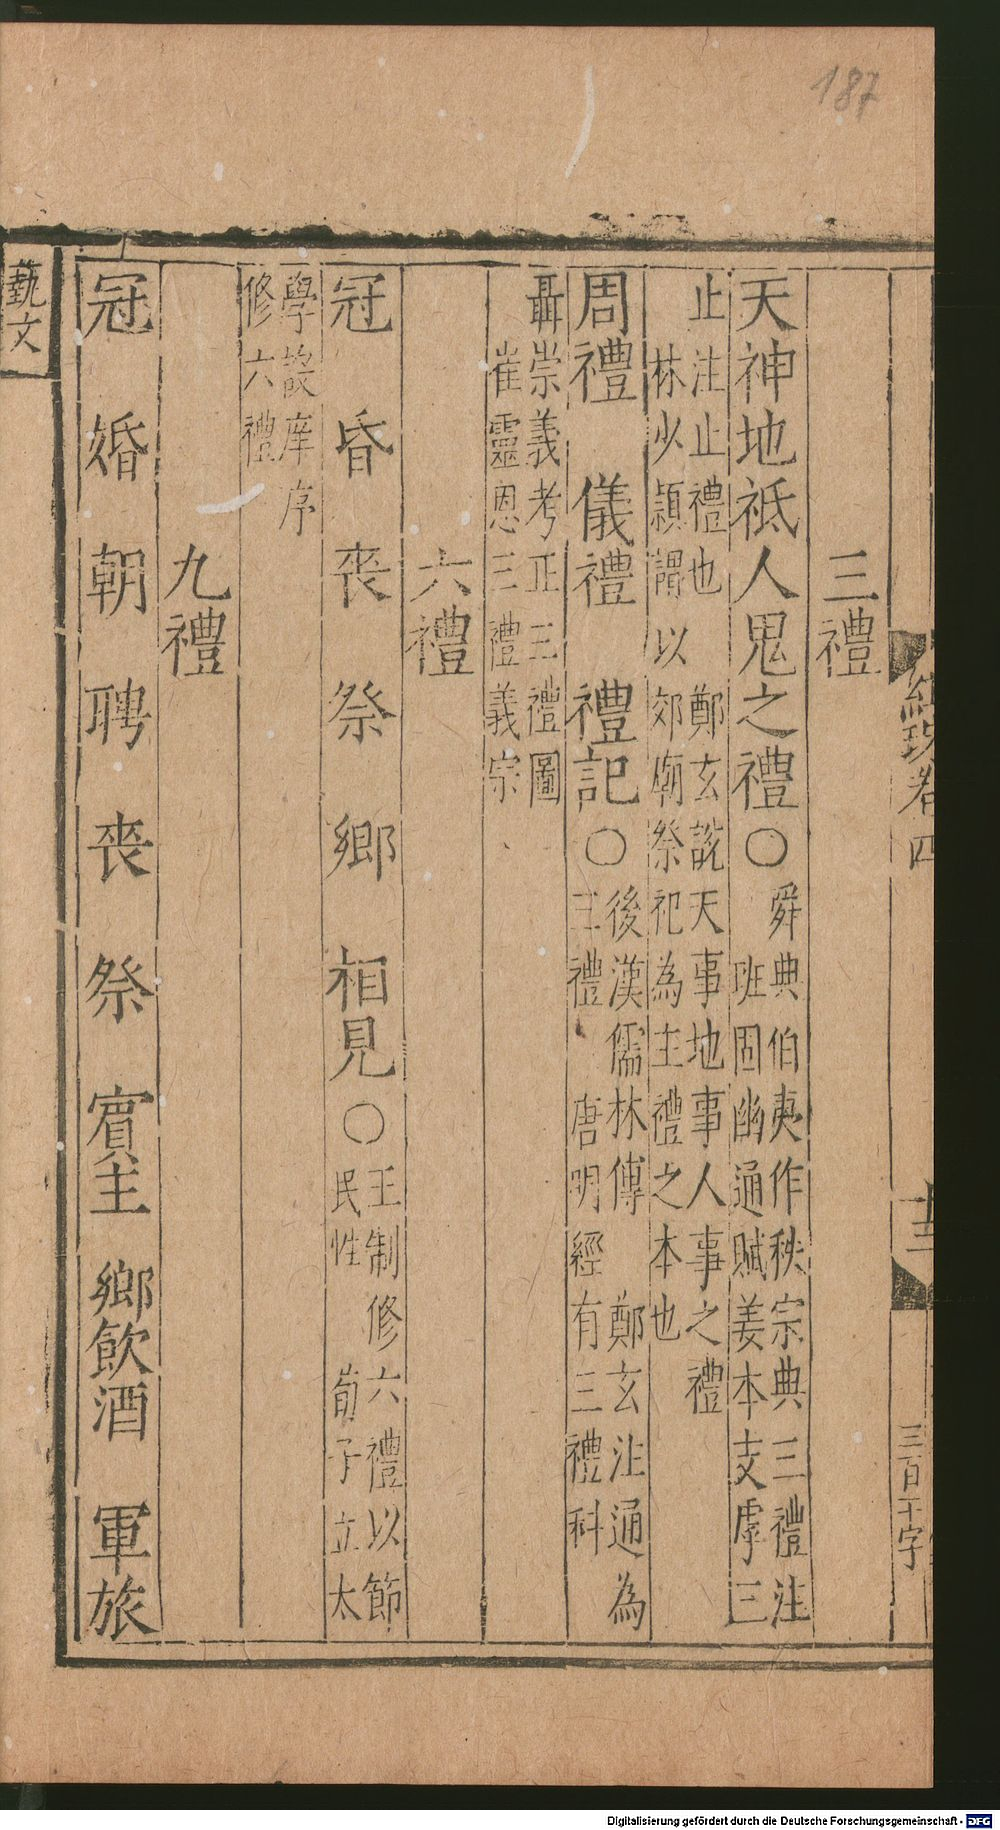 187
三禮
天神地祗人鬼之禮〇舜典伯夷作秩宗典三禮注
班固幽通賦姜本支虖三
止注止禮也 鄭玄說天事地事人事之禮
林少頴謂以郊廟祭祀為主禮之本也
周禮 儀禮 禮記〇後漢儒林傳 鄭玄注通為
三禮 唐明經有三禮科
聶崇義考正三禮圖
崔靈恩三禮義宗
六禮
冠 昏 喪 祭 鄉 相見〇王制修六禮以節
民性 荀子立太
學設庠序
修六禮
九禮
冠 婚 朝 聘 喪 祭 賓主 鄉飲酒 軍旅
藝文
卷四
三百干字
Digitalisierung gefördert durch die Deutsche Forschungsgemeinschaft - DFG